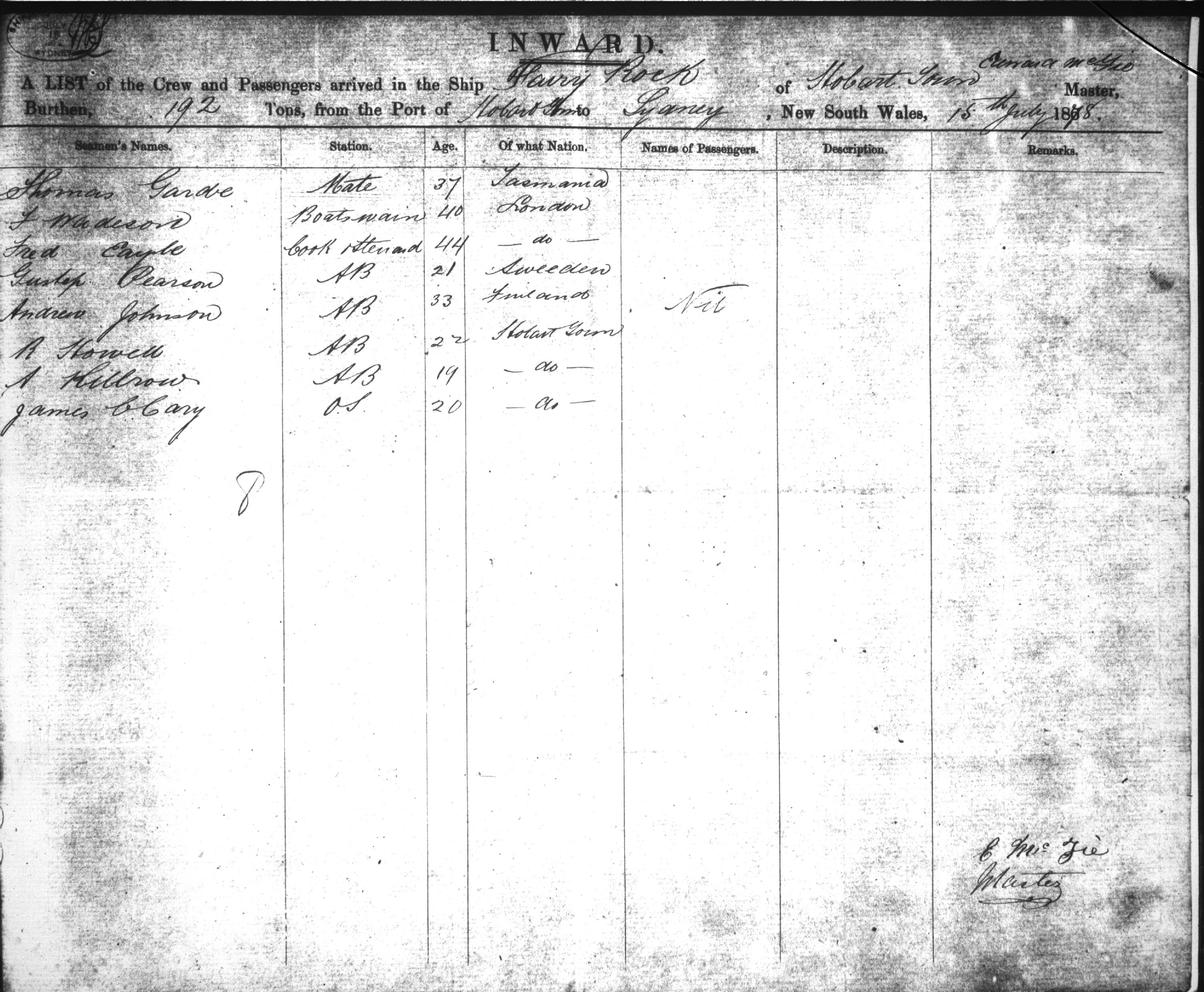 INWARD.
A LIST of the Crew and Passengers arrived in the Ship Fairy Rock of Hobart Town Edward McZie Master,
Burthen, 192 Tons, from the Port of Hobart Town to Sydney, New South Wales, 15th July 1878.
Seamen's Names. Station. Age. Of what Nation. Names of Passengers. Description. Remarks.
Thomas Garde Mate 37 Tasmania
F Wadeson Boatswain 40 London
Fred Cayle Cook & Steward 44 — do —
Gustep Pearson AB 21 Sweeden
Andrew Johnson AB 33 Finland Nil
R Howell AB 22 Hobart Town
A Killrow AB 19 — do —
James C Cary OS. 20 — do —
8
E McZie
Master